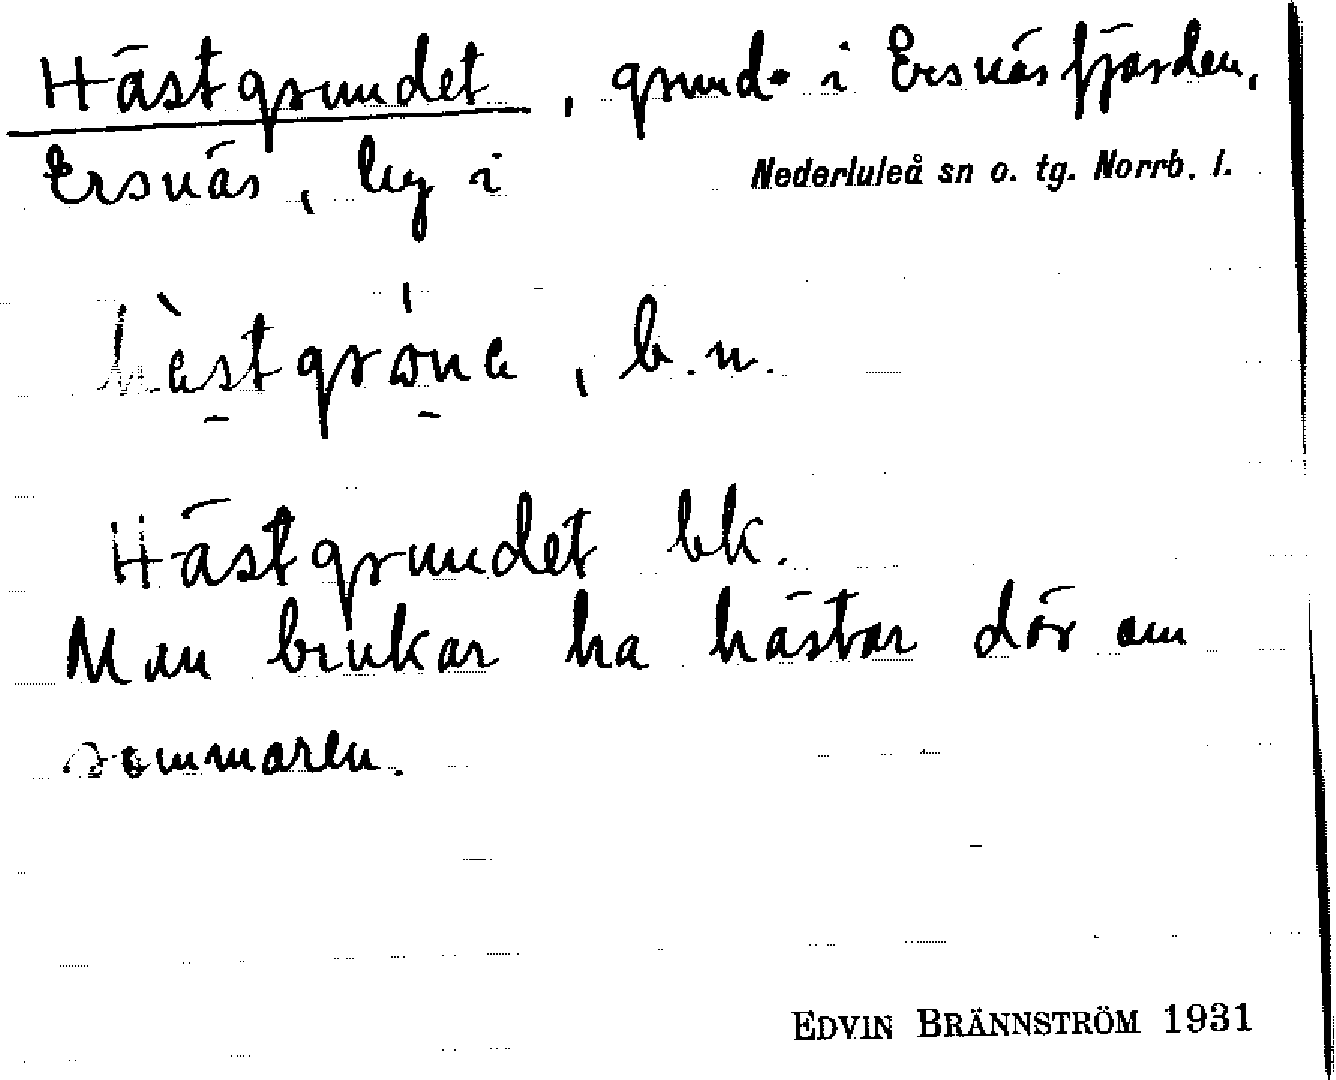 Hästgrundet, grund i Ersnäsfjärden,
Ersnäs, by i Nederluleå sn o. tg. Norrb. l.
hèstgrönɐ, b.n.
Hästgrundet bk.
Man brukar ha hästar där om
sommaren.
EDVIN BRÄNNSTRÖM 1931